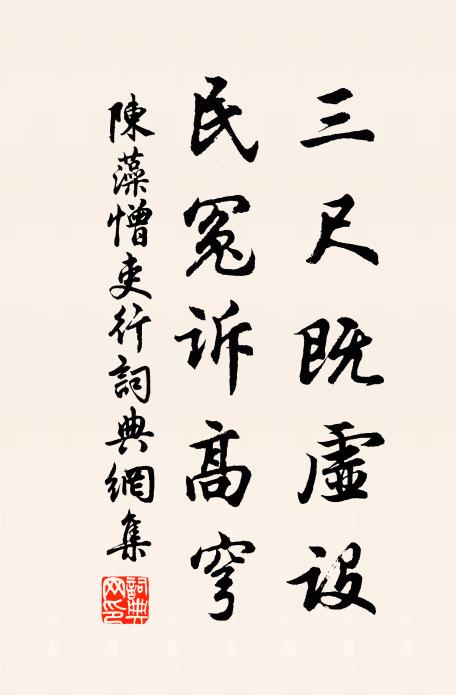 三尺既虛設
民冤訴高穹
陳藻憎吏行詞典網集